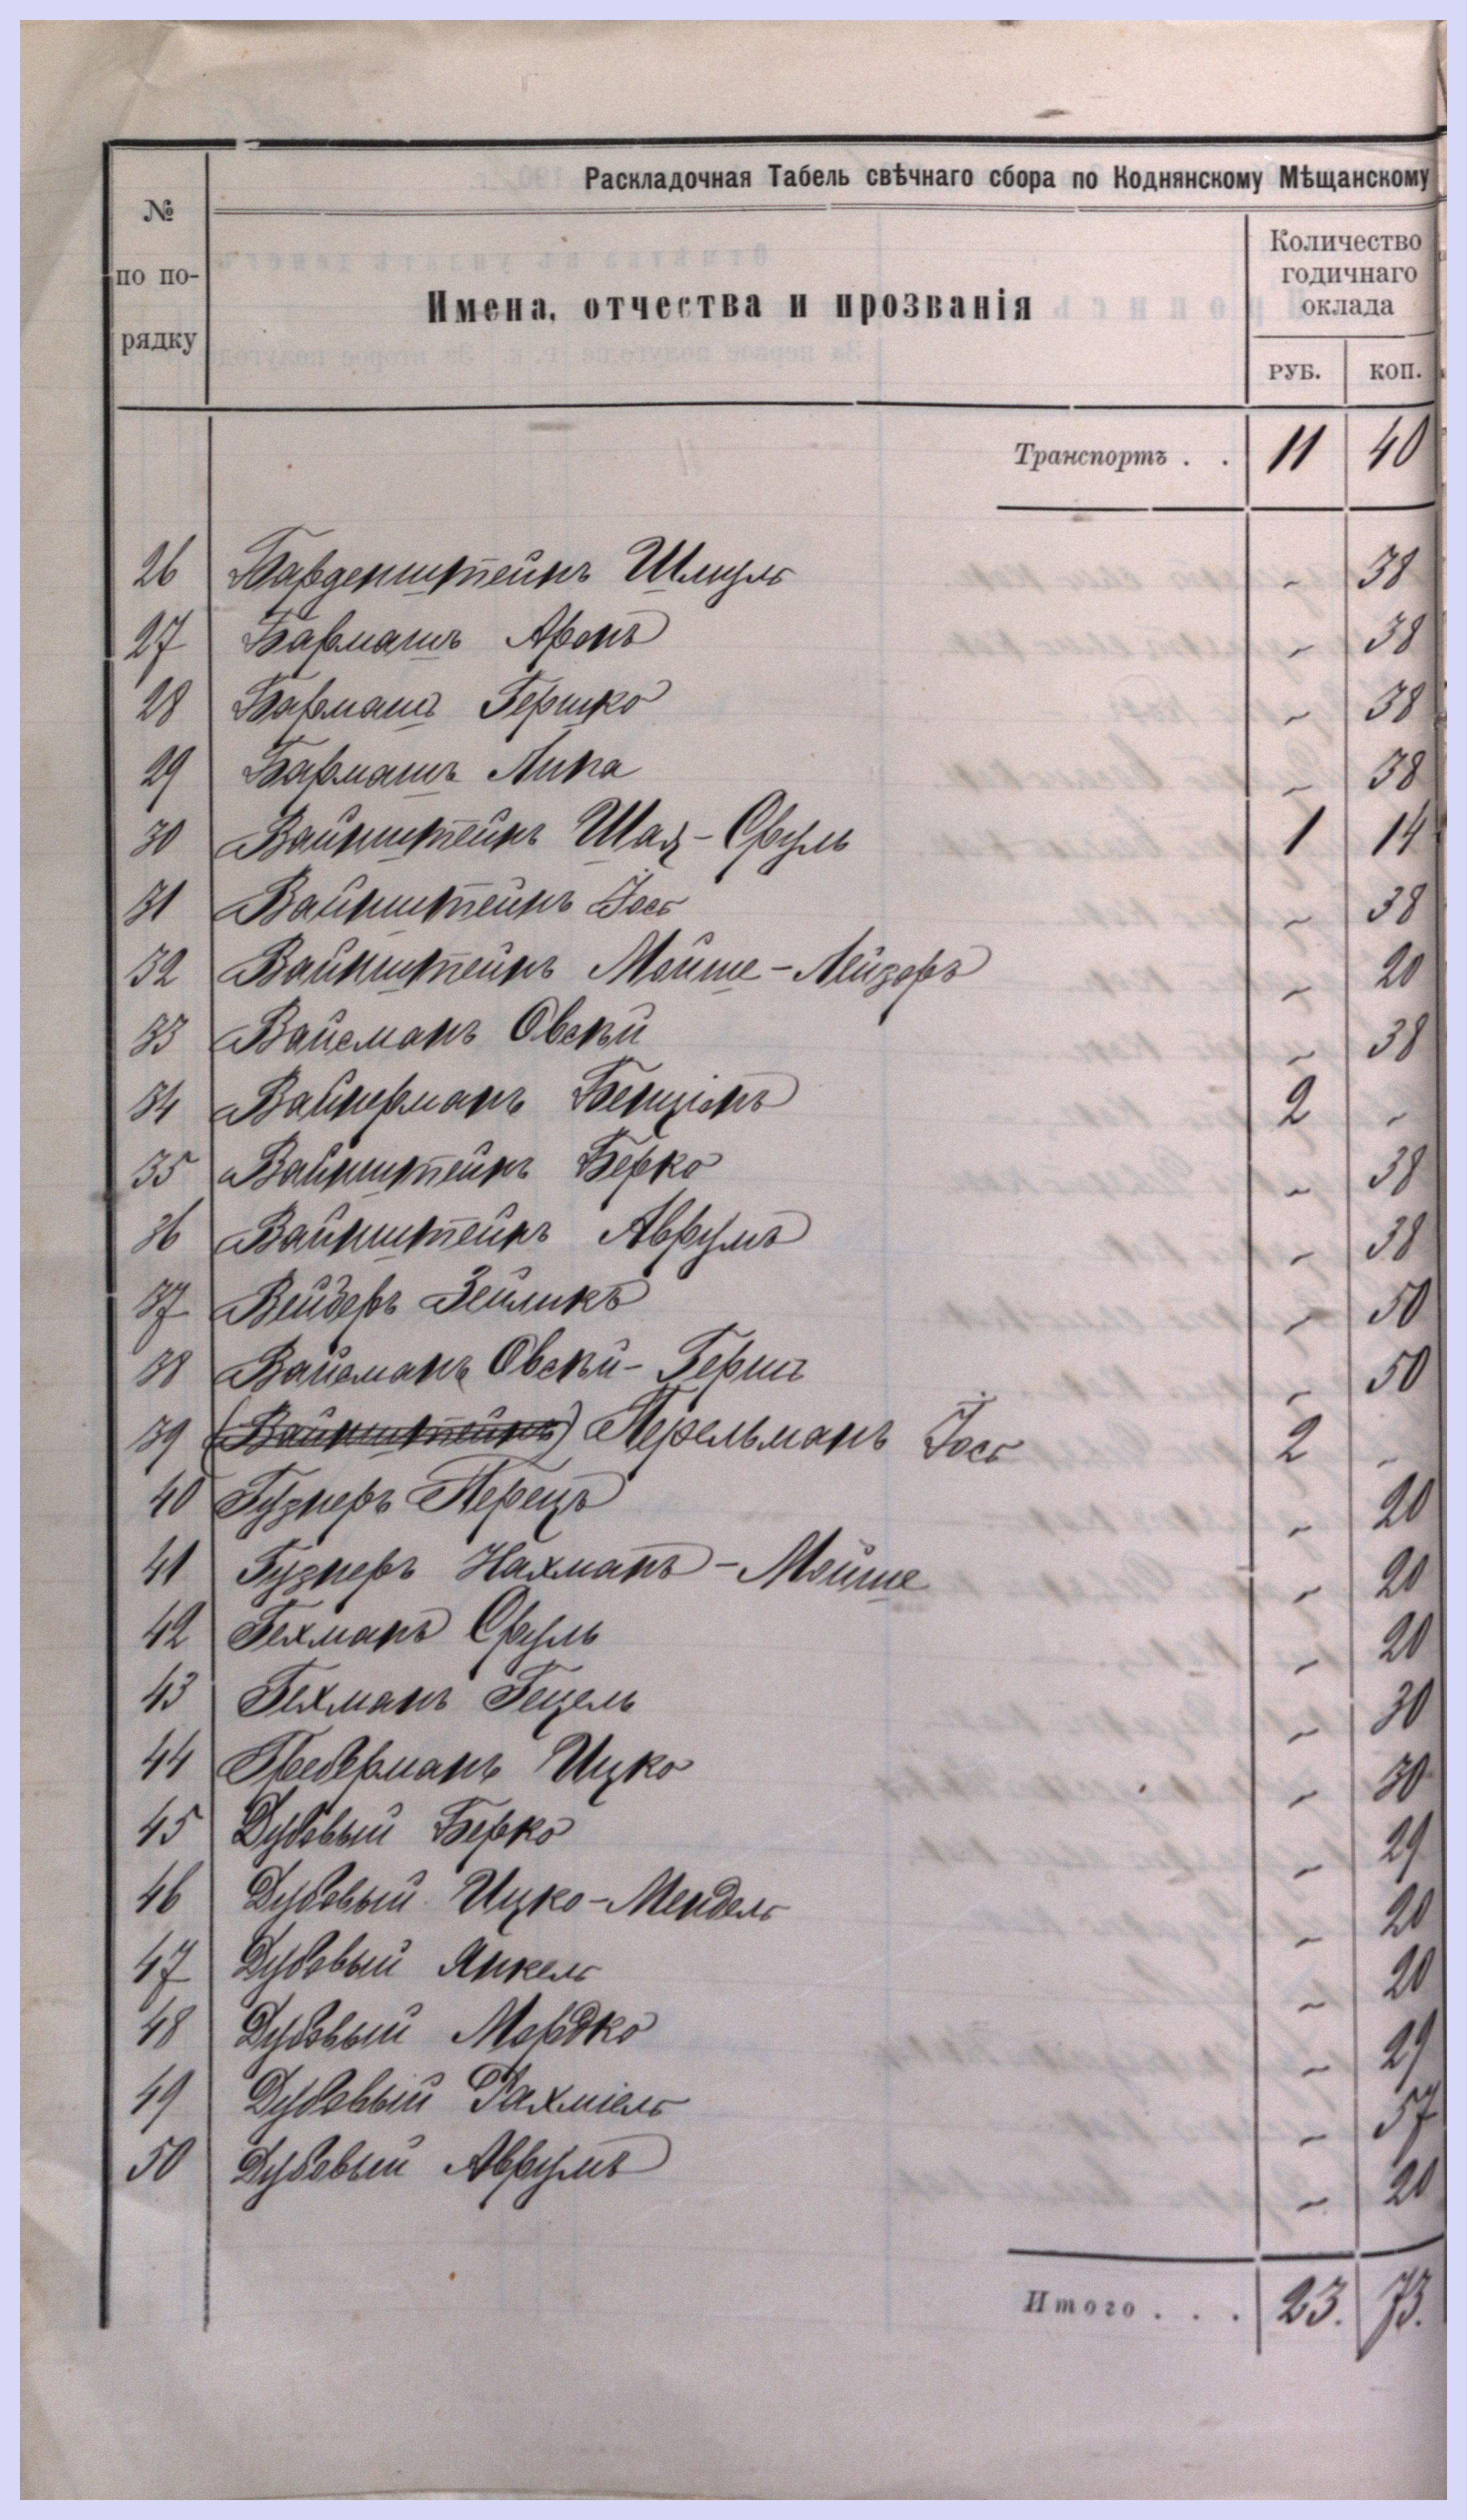 Раскладочная Табель свѣчнаго сбора по Коднянскому Мѣщанскому
№ по порядку
Имена, отчества и прозванія
Количество годичнаго оклада
РУБ. КОП.
Транспортъ . . 11 40
26 Барденштейнъ Шмуль - 38
27 Бармашъ Аронъ - 38
28 Бармашъ Гершко - 38
29 Бармашъ Липа - 38
30 Вайнштейнъ Шая-Сруль 1 14
31 Вайнштейнъ Іось - 38
32 Вайнштейнъ Мойше-Лейзоръ - 20
33 Вайсманъ Овсѣй - 38
34 Вайнерманъ Бенціонъ 2 -
35 Вайнштейнъ Берко - 38
36 Вайнштейнъ Аврумъ - 38
37 Вейдеръ Зейликъ - 50
38 Вайсманъ Овсѣй-Герш - 50
39 (Вайнштейнъ) Перельманъ Іось 2 -
40 Гузнеръ Перецъ - 20
41 Гузнеръ Нахманъ-Мойше - 20
42 Гехманъ Сруль - 20
43 Гехманъ Гецель - 30
44 Греберманъ Ицко - 30
45 Дубовый Берко - 29
46 Дубовый Ицко-Мендель - 20
47 Дубовый Янкель - 20
48 Дубовый Мордко - 29
49 Дубовый Рахміель - 57
50 Дубовый Аврумъ - 20
Итого . . . 23. 73.